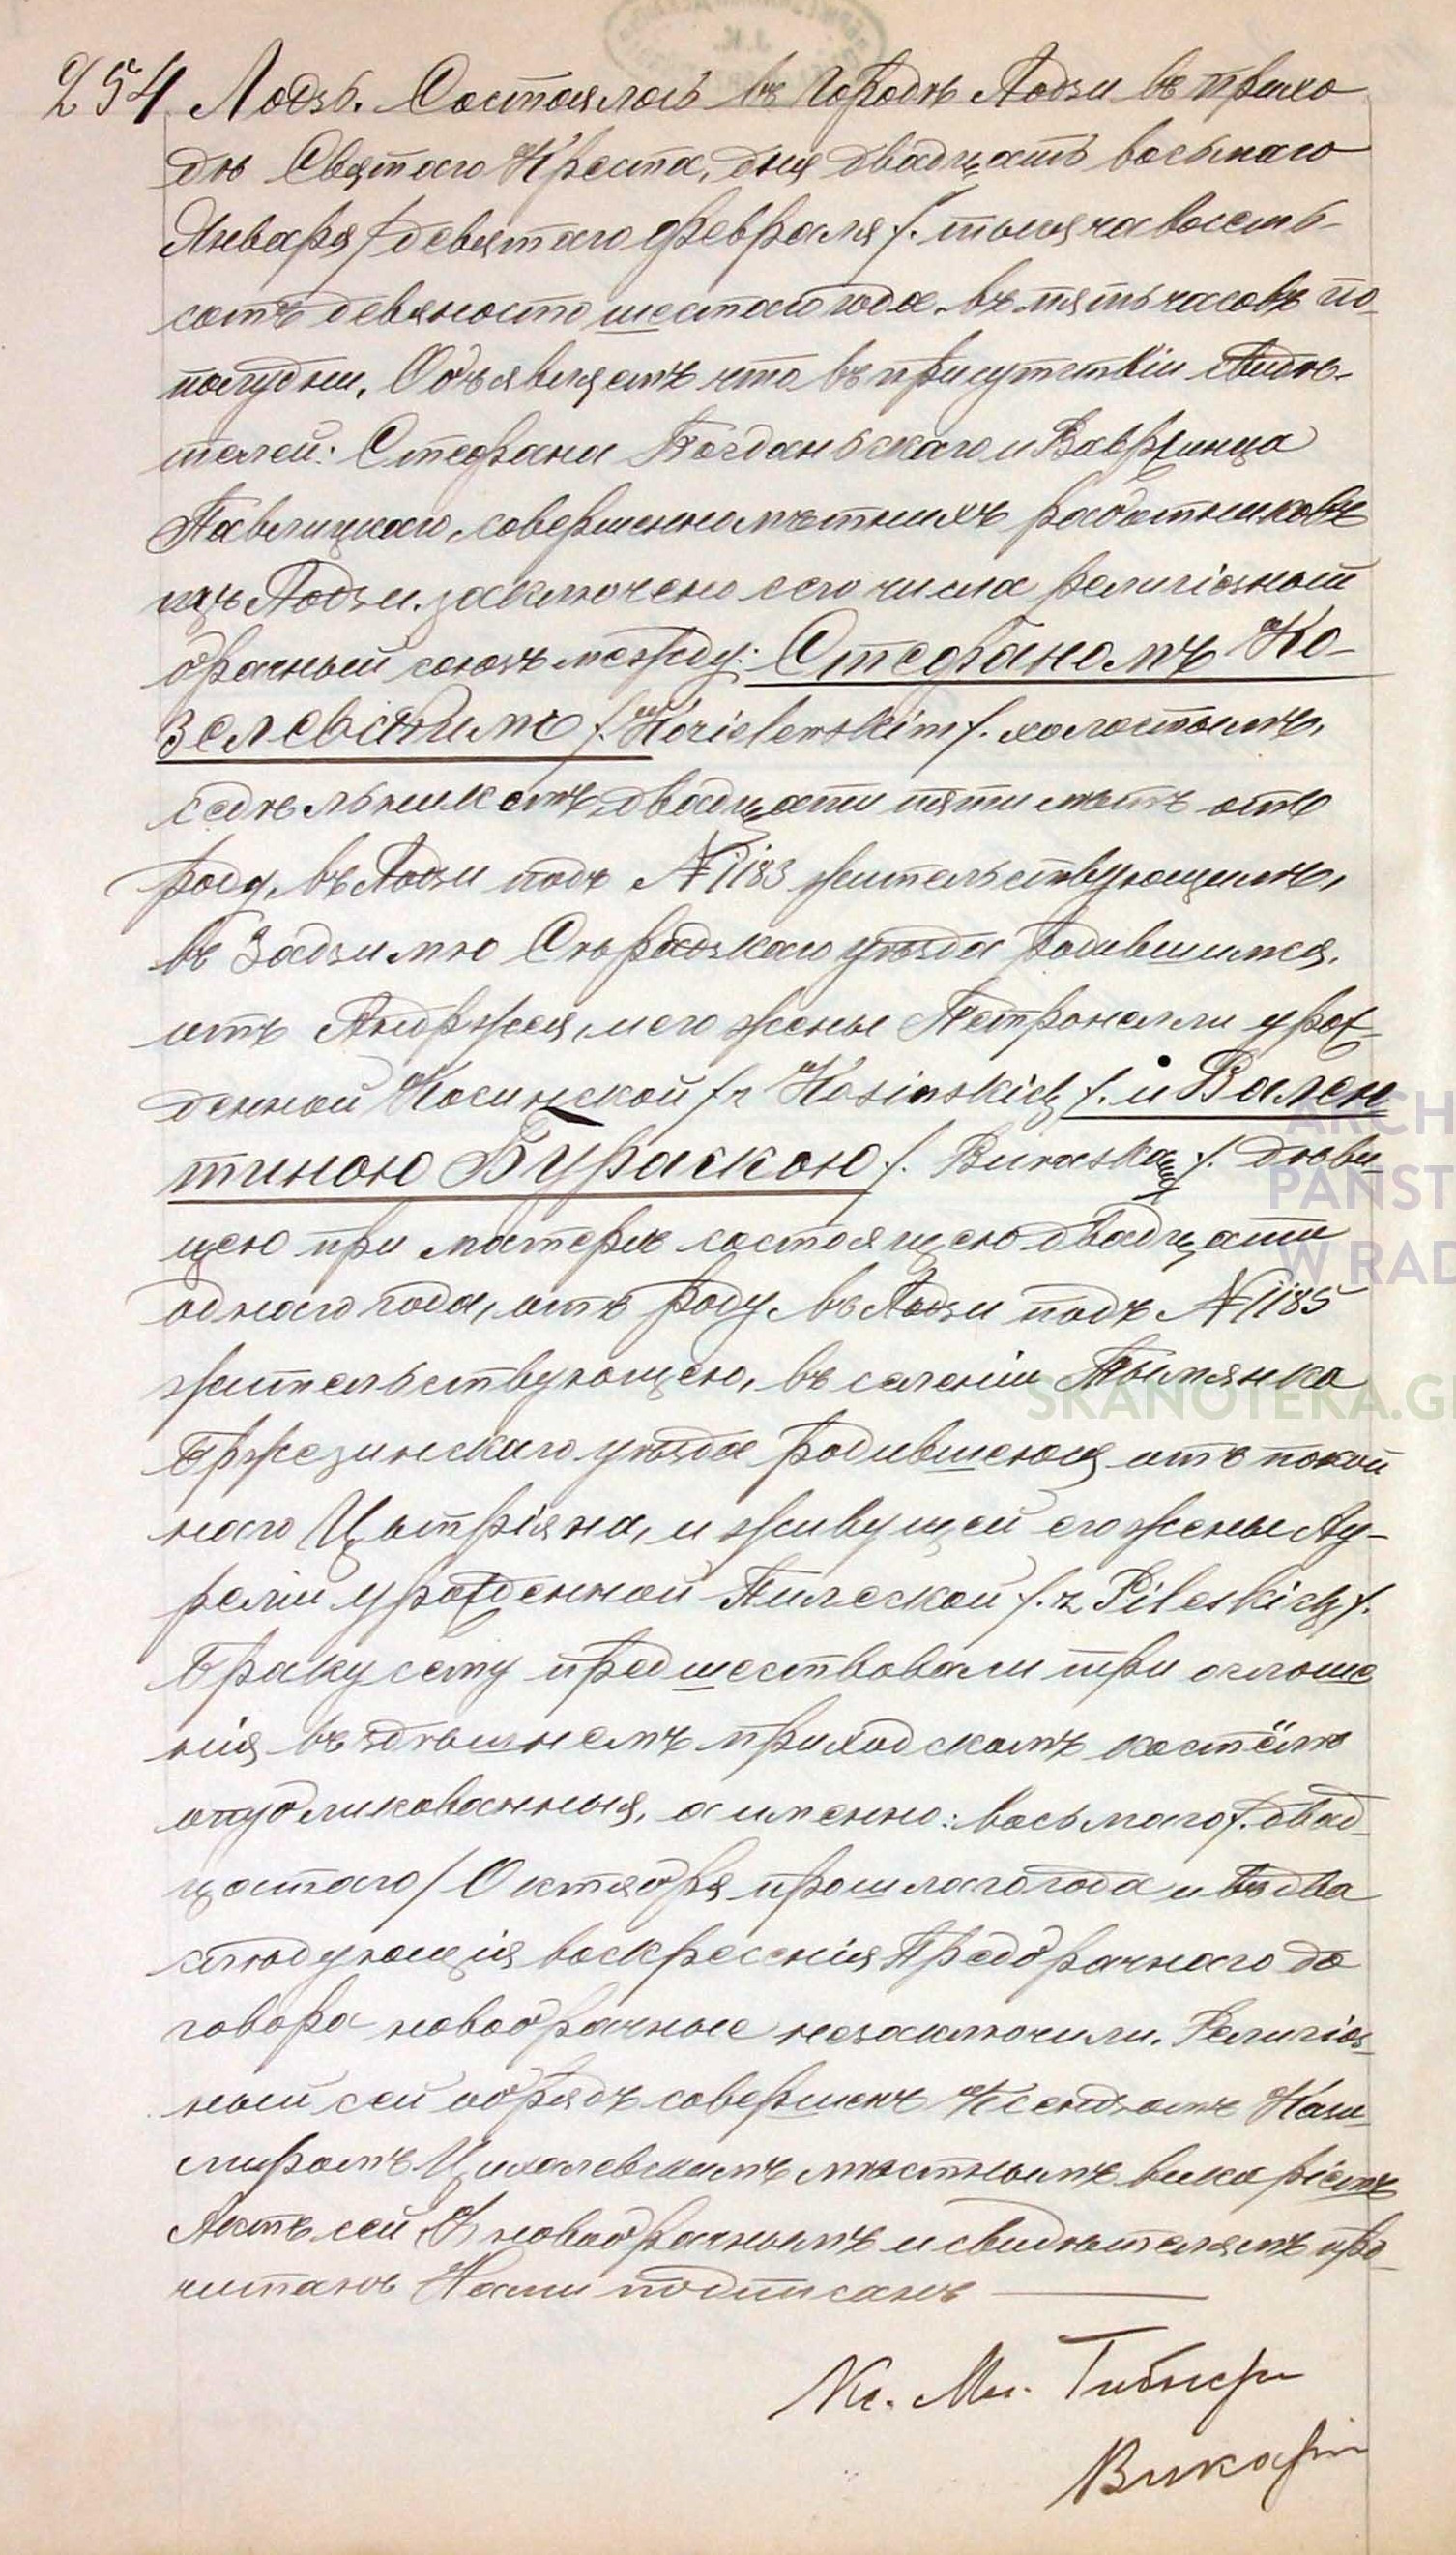 254. Лодзь. Состоялось въ городѣ Лодзи въ прихо
дѣ Святаго Креста, дня двадцать восьмаго
Января / девятаго февраля /. тысяча восемь-
сотъ девяносто шестаго года въ пять часовъ по-
полудни. Объявляемъ что въ присутствіи свидѣ-
телей: Стефана Богданьскаго и Вавржинца
Павлицкаго, совершеннолѣтнихъ работниковъ
изъ Лодзи. заключено сего числа религіозный
брачный союзъ между: Стефаномъ Ко-
зелевскимъ /. Kozielewskim /. холостымъ,
седѣльникомъ, двадцати пяти лѣтъ отъ
роду, въ Лодзи подъ № 1183 жительствующимъ,
въ Задзимѣ Сѣрадзкаго уѣзда родившимся,
отъ Андржея, и его жены Петронелли урож-
денной Косинской /z Kosinskich /. и Вален
тиною Бураскою /. Buraską /. дѣви-
цею при матери состоящею двадцати
одного года, отъ роду въ Лодзи подъ № 1185
жительствующею, въ селеніи Тымянка
Бржезинскаго уѣзда родившеюся отъ покой
наго Цыпріяна, и живущей его жены Ау-
реліи урожденной Пилеской /. z Pileskich /.
Браку сему предшествовали три оглаше
нія въ здѣшнемъ приходскомъ костёлѣ
опубликованныя, а именно: восьмаго /. двад-
цатаго / Октября прошлаго года и въ два
слѣдующія воскресенія Предбрачнаго до
говора новобрачные незаключили. Религіоз-
ный сей обрядъ совершенъ Ксендзомъ Кази-
миромъ Цихалевскимъ мѣстнымъ викаріемъ
Актъ сей новобрачнымъ и свидѣтелямъ про-
читанъ Нами подписанъ
Кс. Ми. Гибнеръ
Викарій
ARCH
PAŃST
W RAD
SKANOTEKA.G